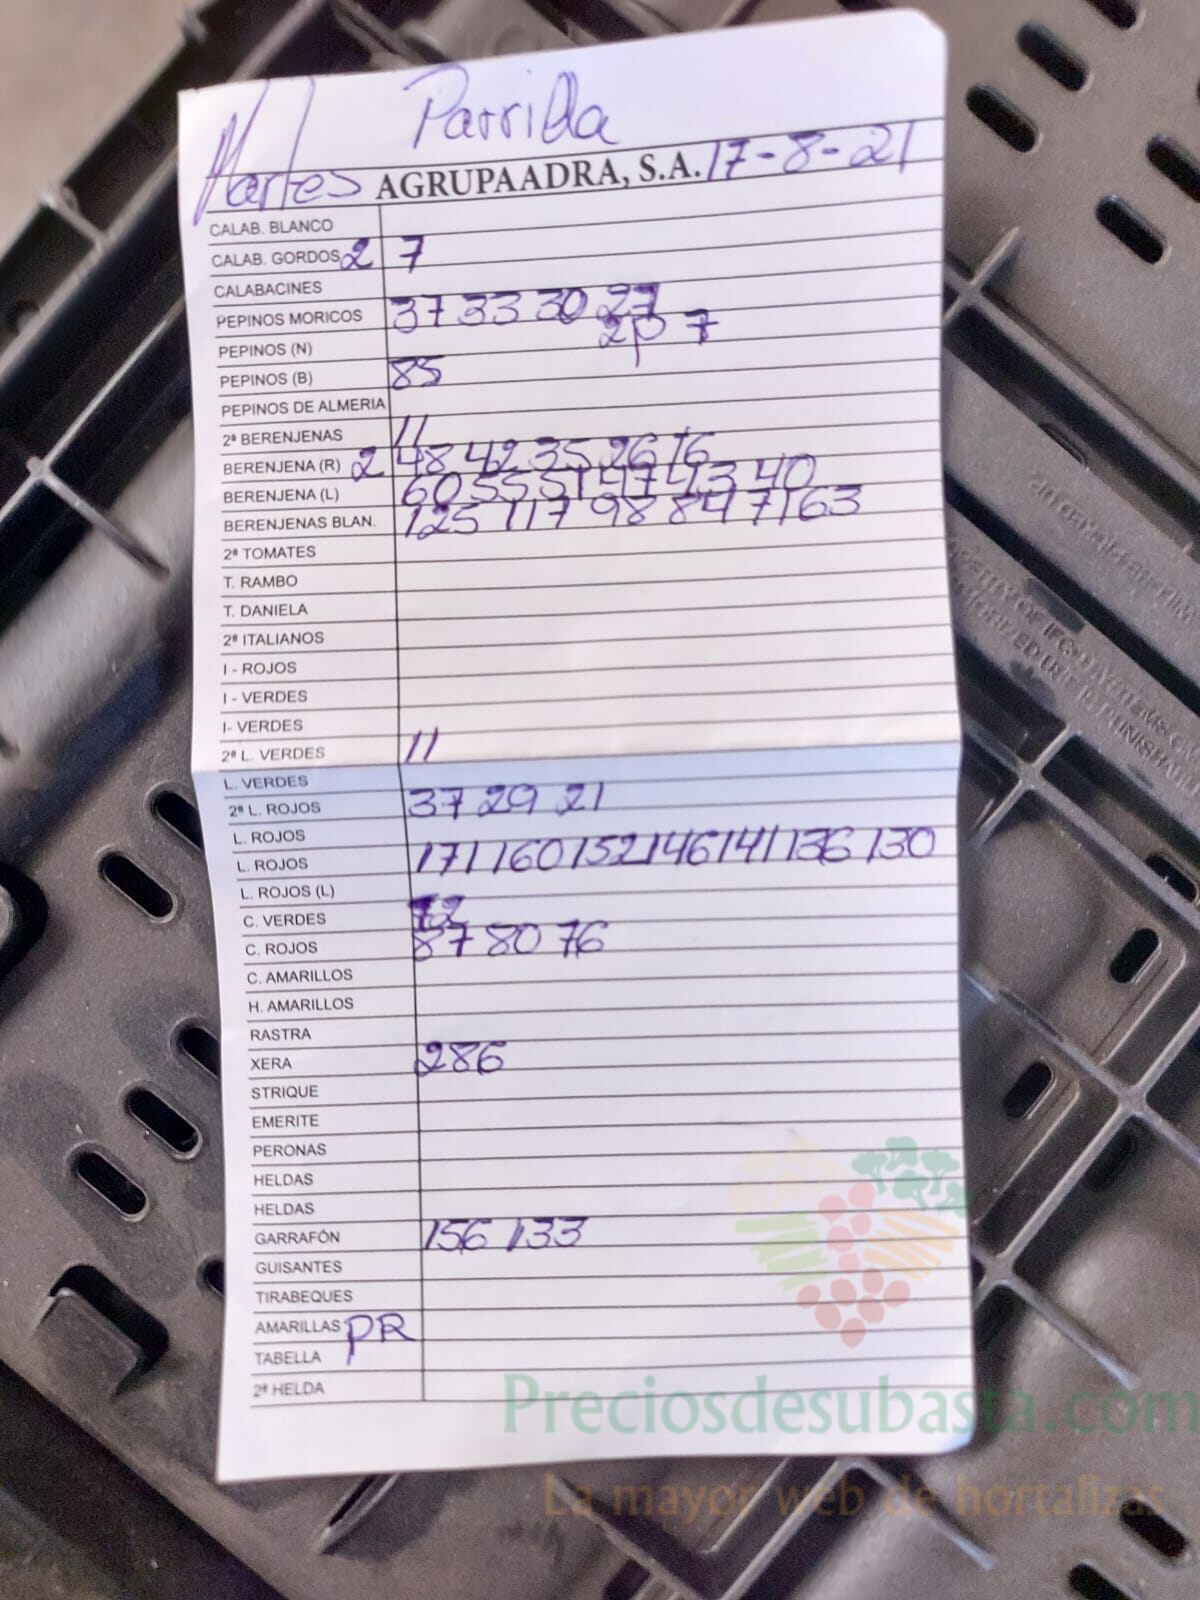 Parrilla
Martes AGRUPAADRA, S.A. 17-8-21
CALAB. BLANCO
CALAB. GORDOS 2 7
CALABACINES
PEPINOS MORICOS 37 33 30 27
PEPINOS (N) 2p 7
PEPINOS (B) 85
PEPINOS DE ALMERIA
2ª BERENJENAS 11
BERENJENA (R) 2 48 42 35 26 16
BERENJENA (L) 60 55 51 47 43 40
BERENJENAS BLAN. 125 117 98 84 71 63
2ª TOMATES
T. RAMBO
T. DANIELA
2ª ITALIANOS
I - ROJOS
I - VERDES
I- VERDES
2ª L. VERDES 11
L. VERDES
2ª L. ROJOS 37 29 21
L. ROJOS
L. ROJOS 171 160 152 146 141 136 130
L. ROJOS (L)
C. VERDES
C. ROJOS 87 80 76
C. AMARILLOS
H. AMARILLOS
RASTRA
XERA 286
STRIQUE
EMERITE
PERONAS
HELDAS
HELDAS
GARRAFÓN 156 133
GUISANTES
TIRABEQUES
AMARILLAS PR
TABELLA
2ª HELDA
Preciosdesubasta.com
La mayor web de hortalizas